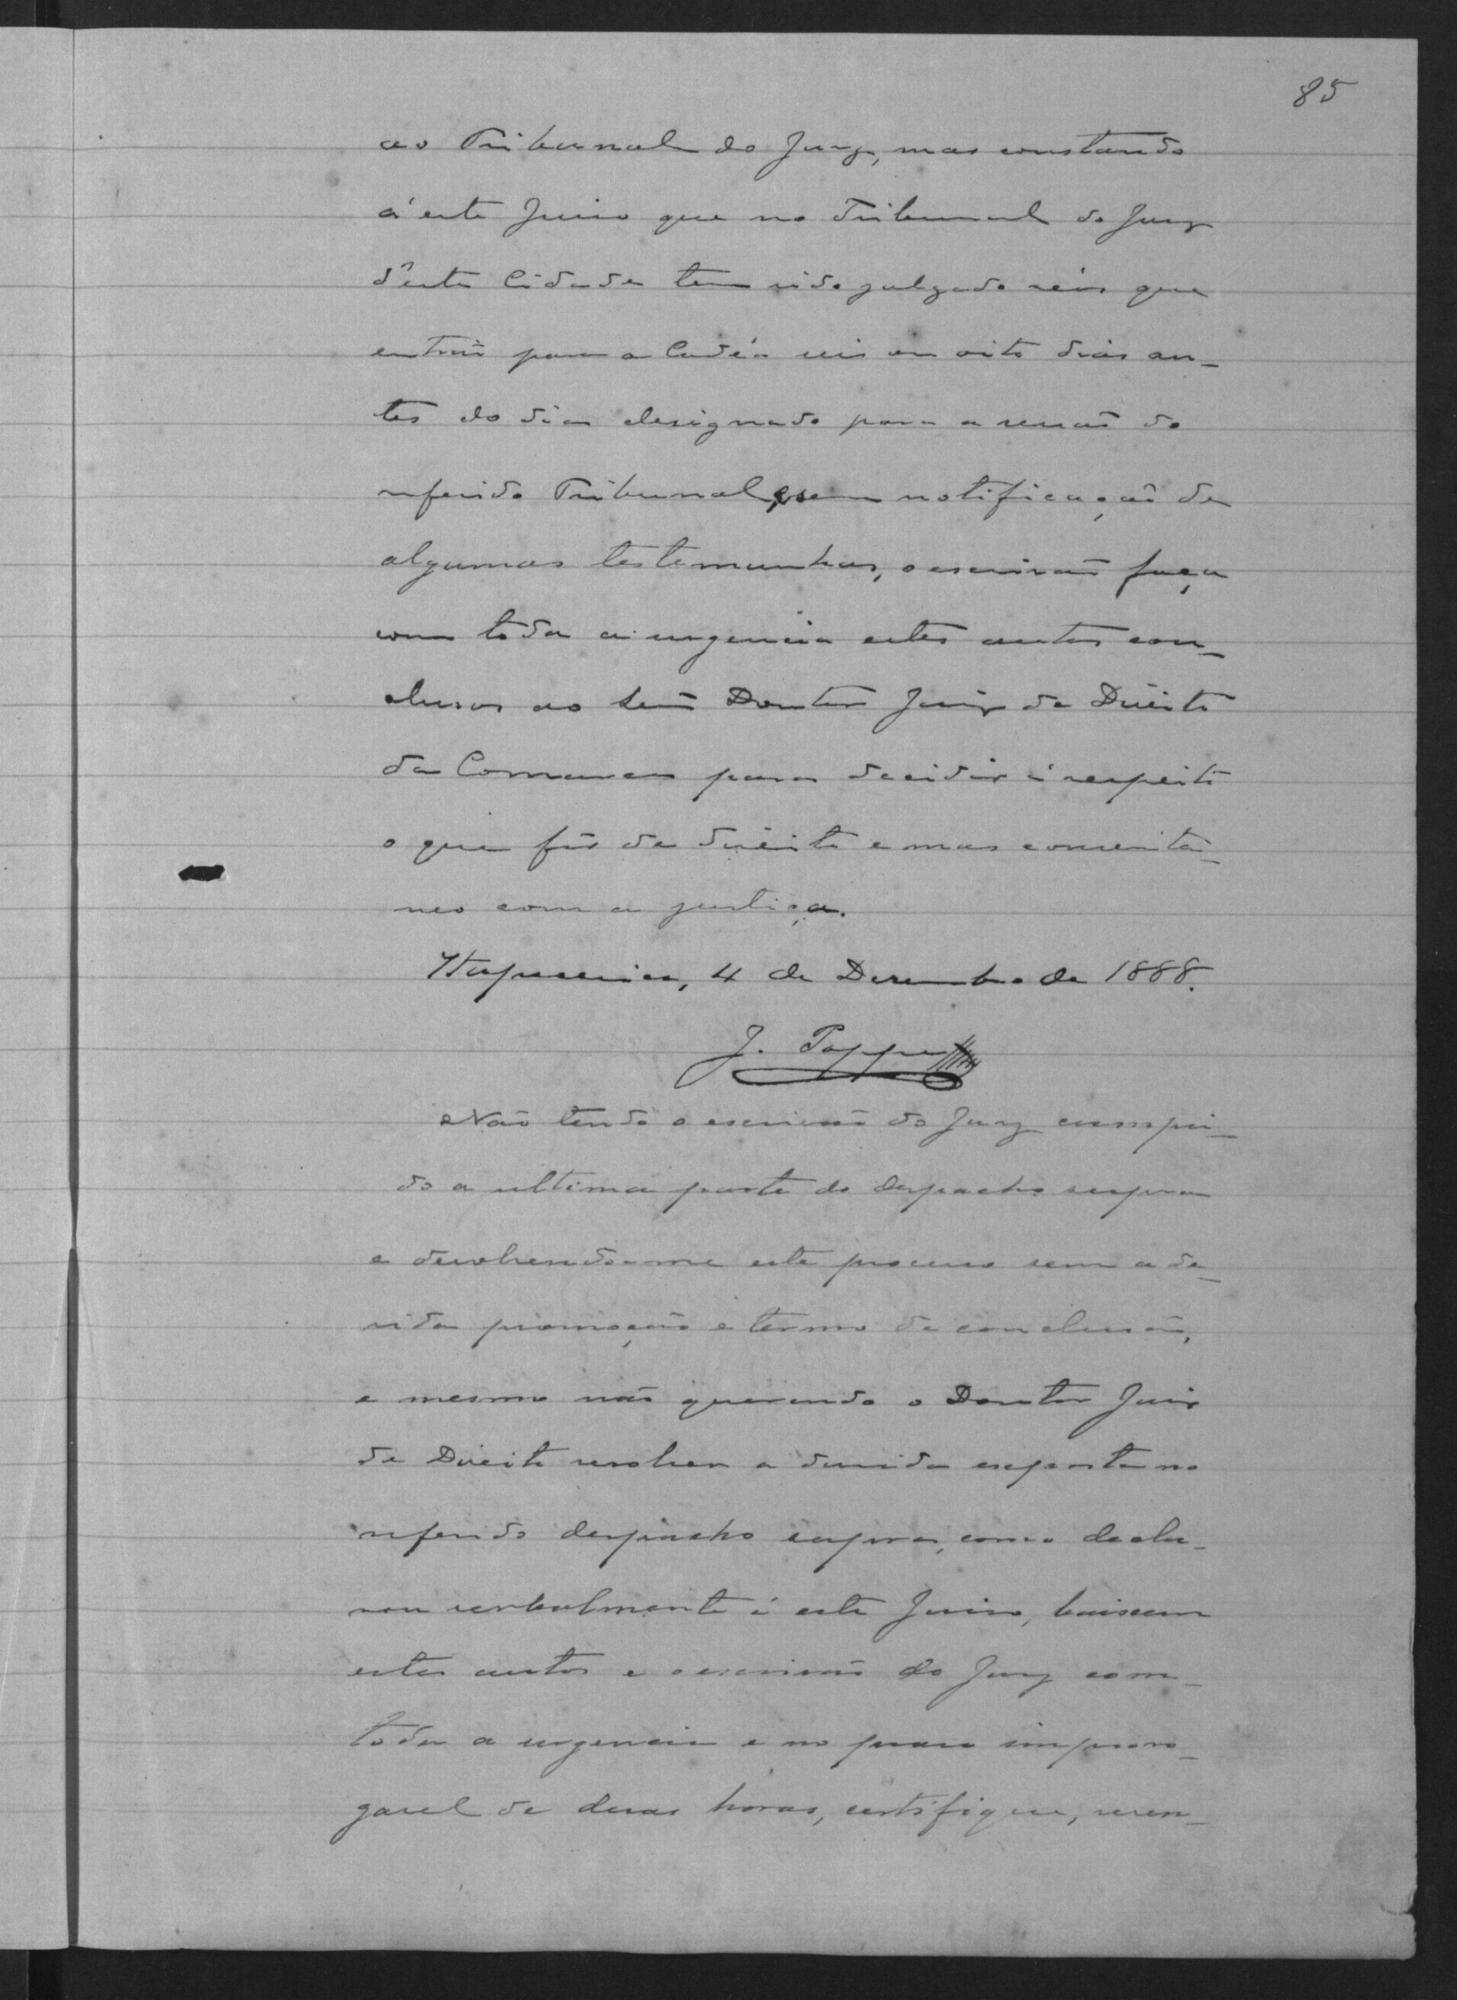 85
ao Tribunal do Jury, mas constando
á este Juizo que no Tribunal do Jury
d'esta Cidade tem sido julgado réos que
entrão para a Cadêa seis ou oito dias an-
tes do dia designado para a sessão do
referido Tribunal, e sem notificação de
algumas testemunhas, o escrivão faça
com toda a urgencia estes autos con-
clusos ao Senr Doutor Juiz de Direito
da Comarca para decidir á respeito
o que fôr de direito e mas consentâ-
neo com a justiça.
Itapecerica, 4 de Dezembro de 1888.
J. Poppe
Não tendo o escrivão do Jury cumpri-
do a ultima parte do despacho supra
e devolvendo-me este processo sem a de-
vida promoção e termo de conclusão,
e mesmo não querendo o Doutor Juiz
de Direito resolver a duvida exposta no
referido despacho supra, como decla-
rou verbalmente á este Juizo, baixem
estes autos e o escrivão do Jury com
toda a urgencia e no praso improro-
gavel de duas horas, certifique, reven-